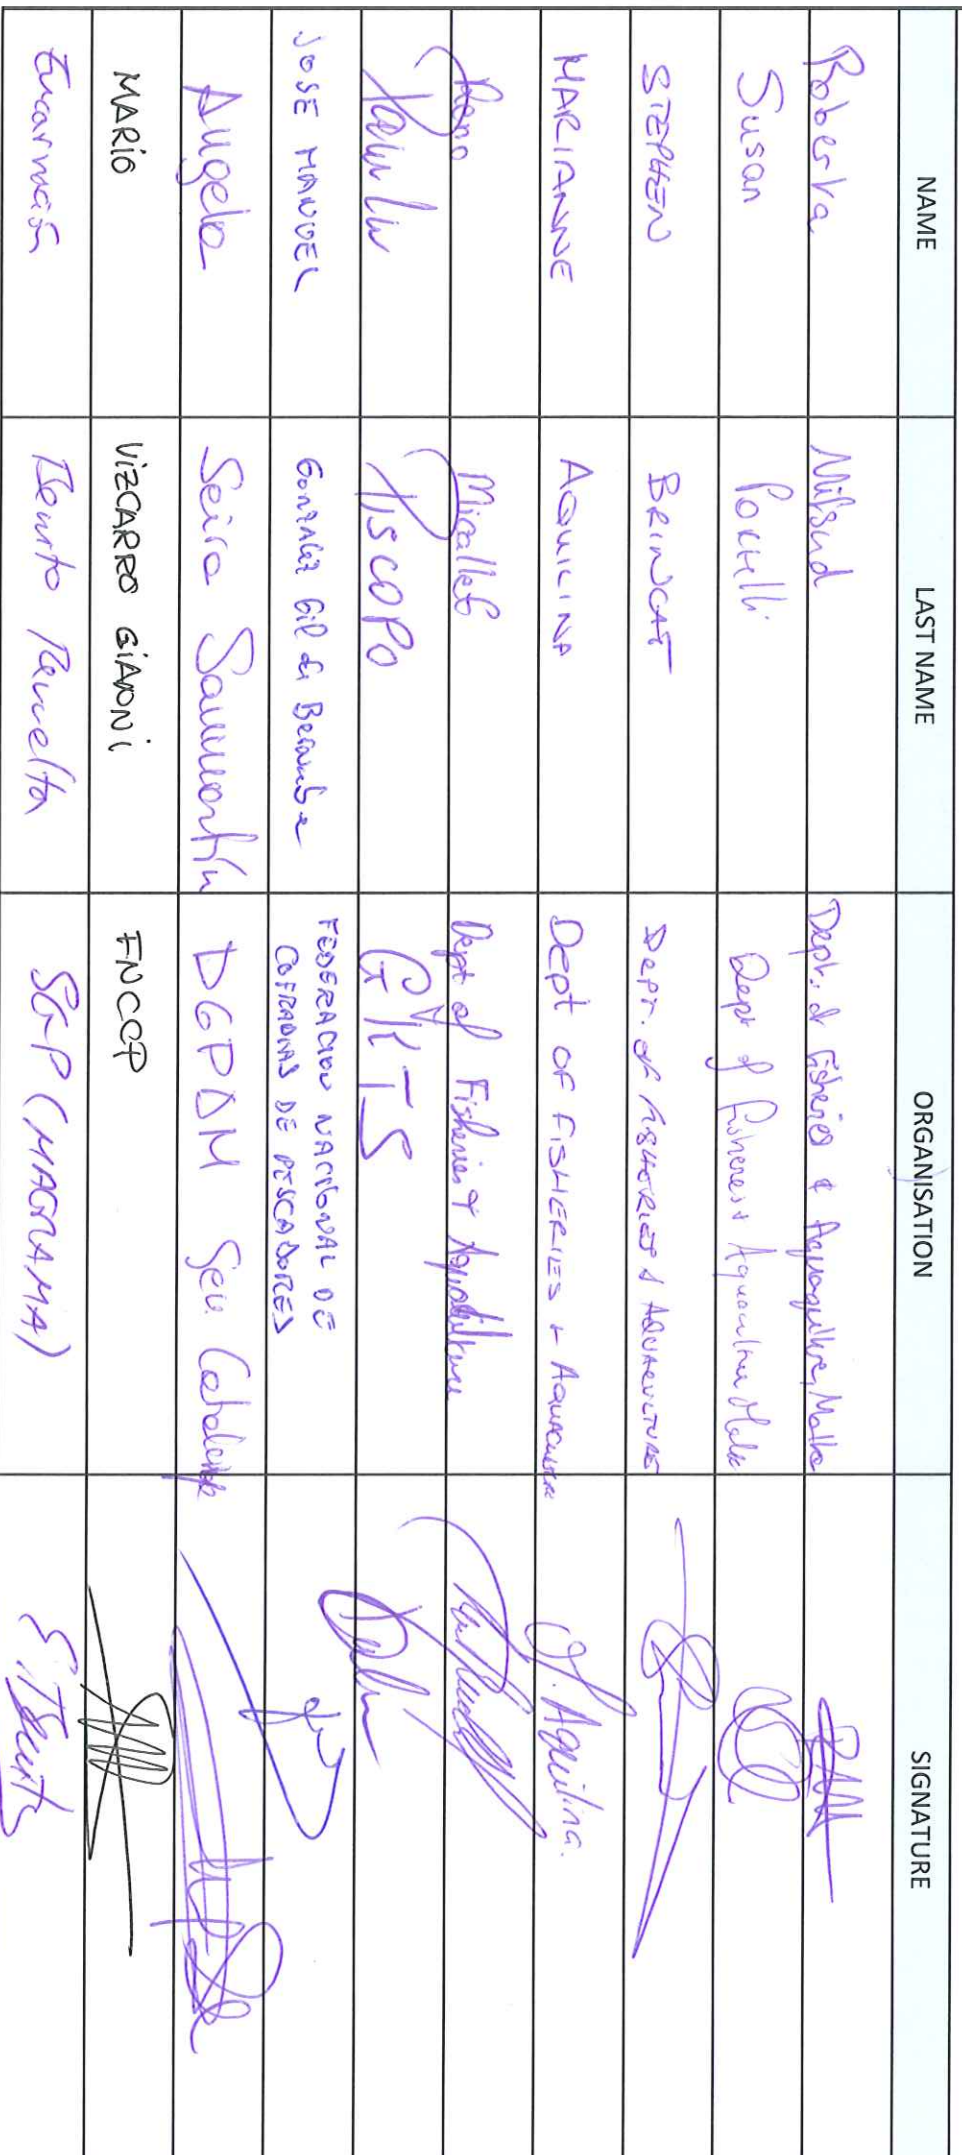 NAME LAST NAME ORGANISATION SIGNATURE
Roberta Mifsud Dept. of Fisheries & Aquaqulture, Malta
Susan Portelli Dept of Fisheries & Aquaculture Malta
STEPHEN BRINCAT Dept. of FISHERIES & AQUACULTURE
MARIANNE AQUILINA Dept OF FISHERIES + AQUACULTURE M. Aquilina.
Micallef Dept of Fisheries & Aquaculture
Pauline PISCOPO GKTS
JOSE MANUEL González Gil de Bernabe FEDERACION NACIONAL DE
COFRADIAS DE PESCADORES
Angela Seira Sanmartín DGPAM Gen. Catalunya
MARIO VIZCARRO GIANNI FNCCP
Encarnación Benito Revuelta SGP (MAGRAMA) E. Benito